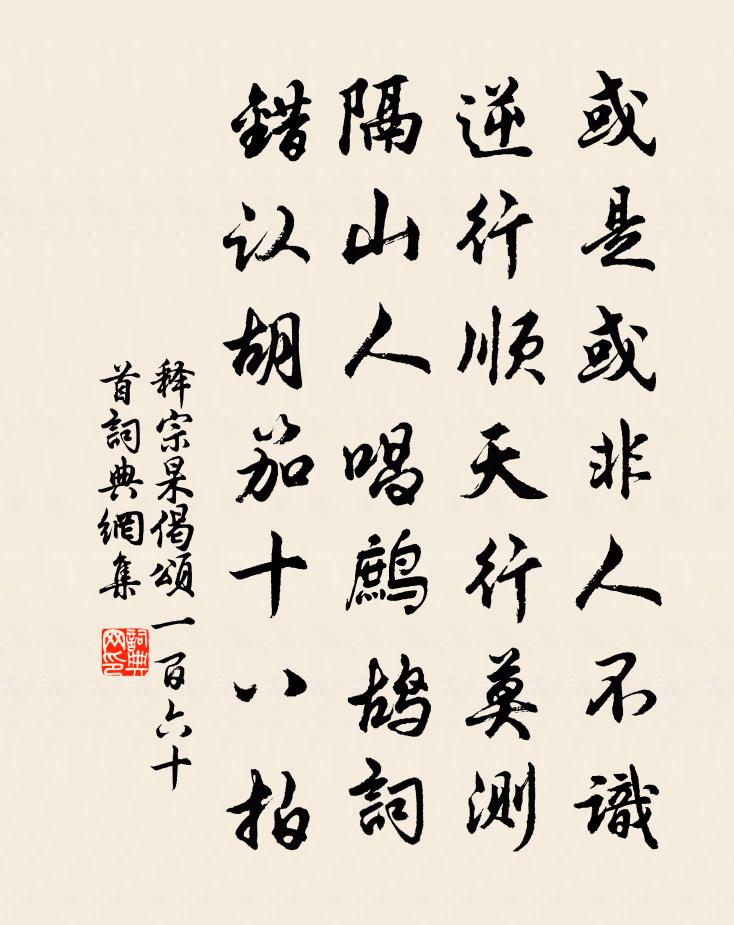 或是或非人不識
逆行順天行莫測
隔山人唱鷓鴣詞
錯认胡笳十八拍
释宗杲偈頌一百六十
首詞典網集
詞典网印